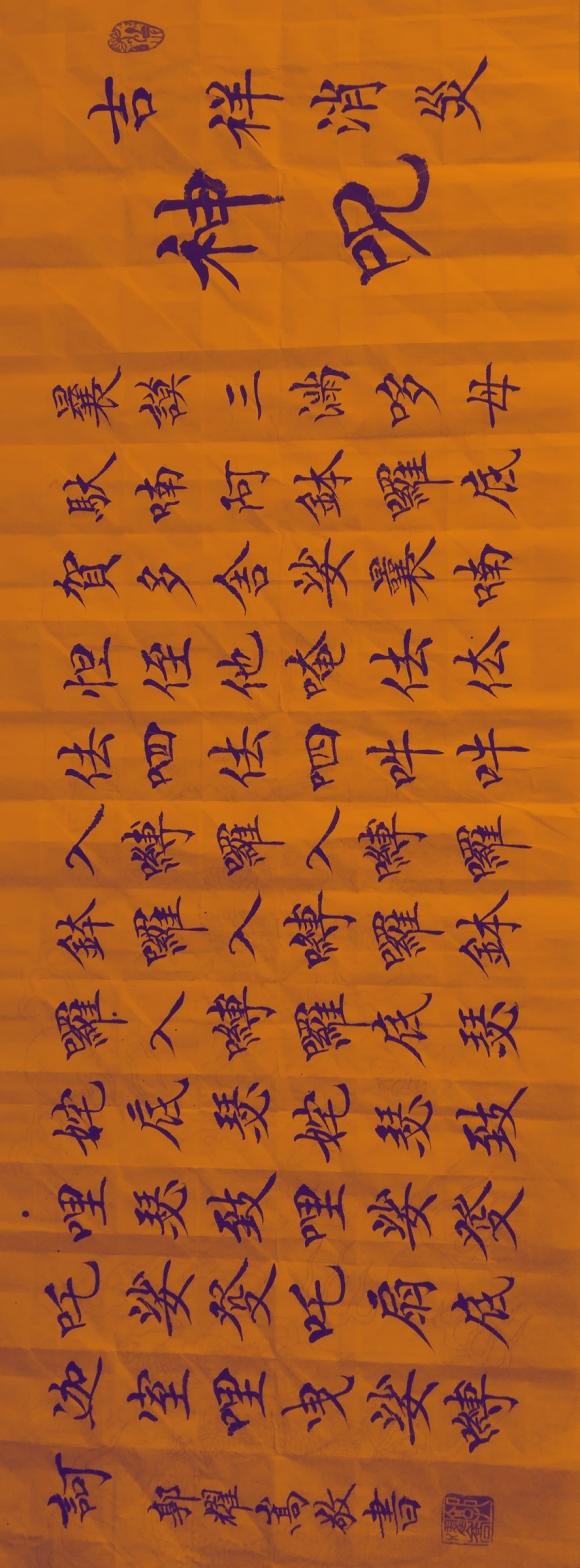 吉祥消災
神呪
曩謨三滿哆母
馱喃阿鉢囉底
賀多舍娑曩喃
怛侄他唵佉佉
佉呬佉呬吽吽
入嚩囉入嚩囉
鉢囉入嚩囉鉢
囉入嚩囉底瑟
姹底瑟姹瑟致
哩瑟致哩娑發
吒娑發吒扇底
迦室哩曳娑嚩
訶 郭耀敬書